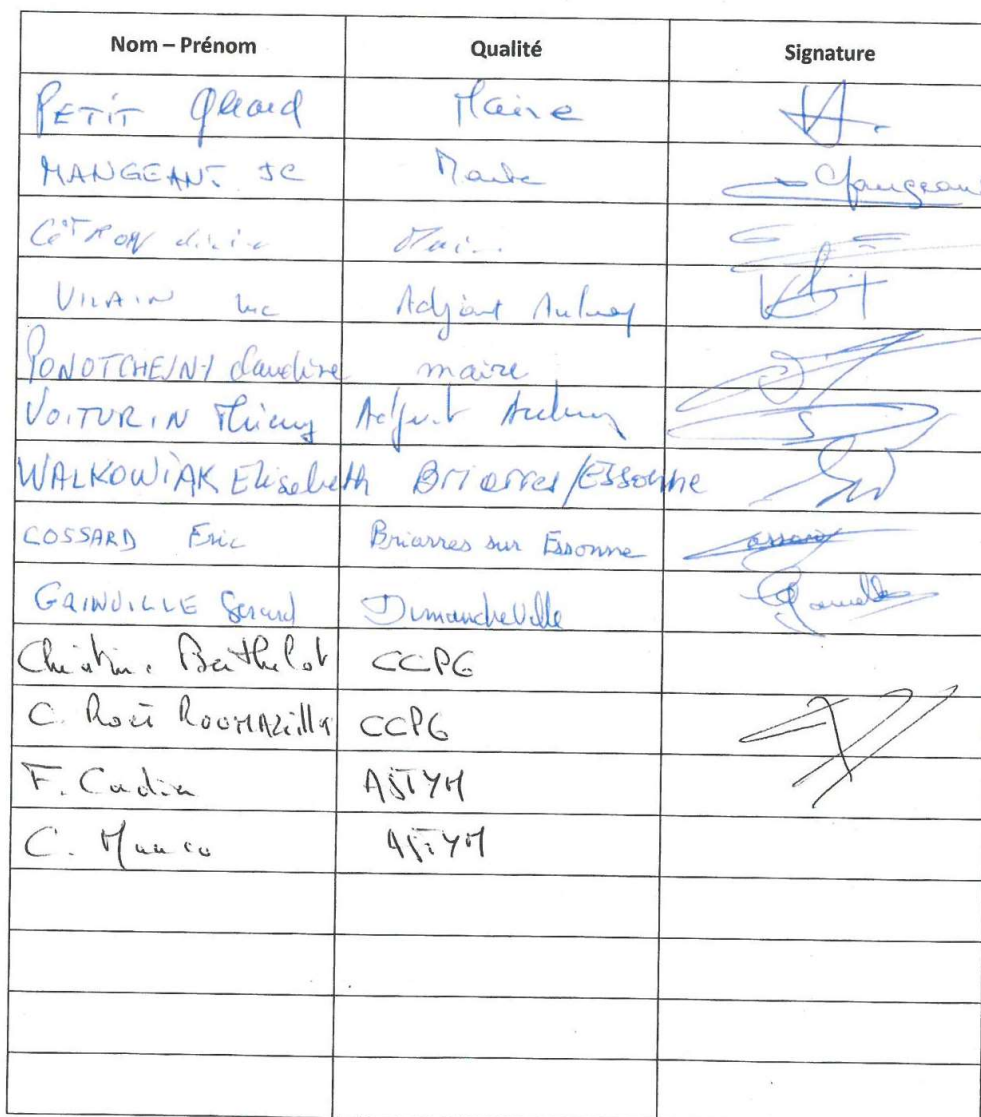 Nom – Prénom Qualité Signature
PETIT Maire
MANGEANT JC Maire
VILAIN Luc Adjoint Aulnay
PONOTCHEVNY Claudine maire
VOITURIN Thierry Adjoint Aulnay
WALKOWIAK Elisabeth Briarres/Essonne
COSSARD Eric Briarres sur Essonne
GAINVILLE Gérard Dimancheville
Christine Berthelot CCPG
C. CCPG
F. ASTYM
C. ASTYM